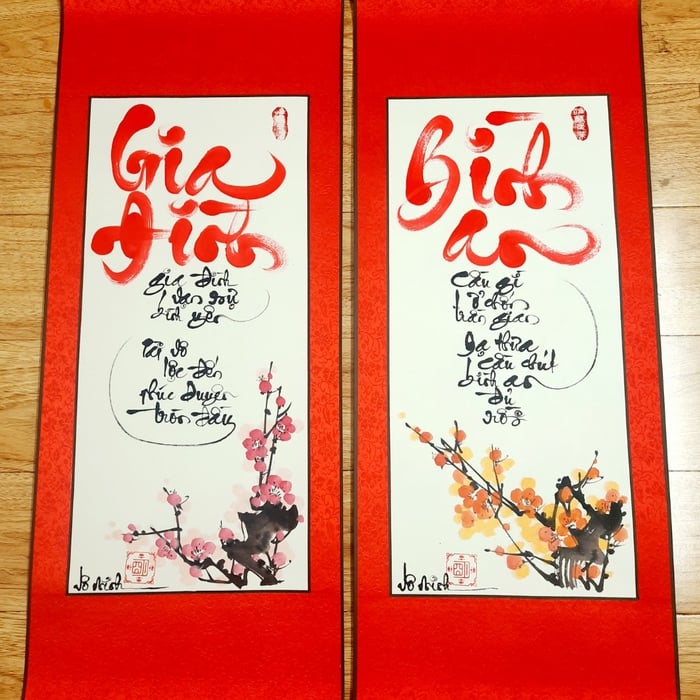 Gia
Đình
gia đình
vạn sự
bình yên
tài vô
lộc đến
phúc duyên
tròn đầy
Bình
an
Cầu gì
ở chốn
trần gian
Dạ thưa
cầu chút
bình an
đủ
rồi